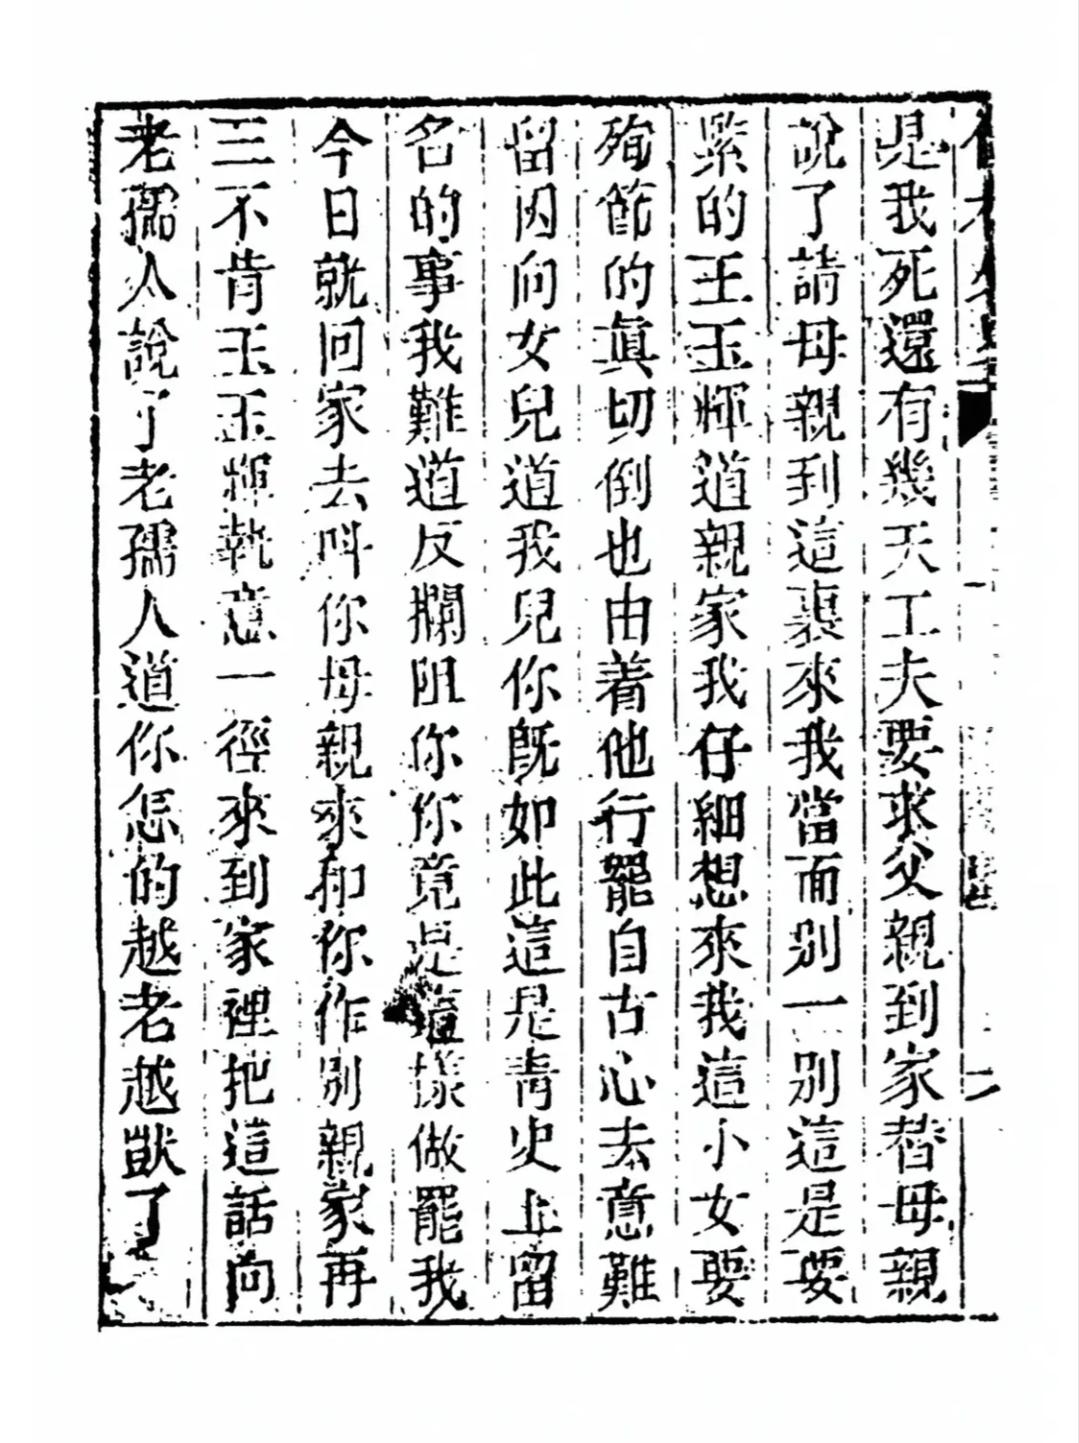 是我死還有幾天工夫要求父親到家替母親
說了請母親到這裏來我當面別一別這是要
緊的王玉輝道親家我仔細想來我這小女要
殉節的眞切倒也由着他行罷自古心去意難
留因向女兒道我兒你既如此這是青史上留
名的事我難道反攔阻你你竟是這樣做罷我
今日就回家去叫你母親來和你作別親家再
三不肯王玉輝執意一徑來到家裡把這話向
老孺人說了老孺人道你怎的越老越獃了